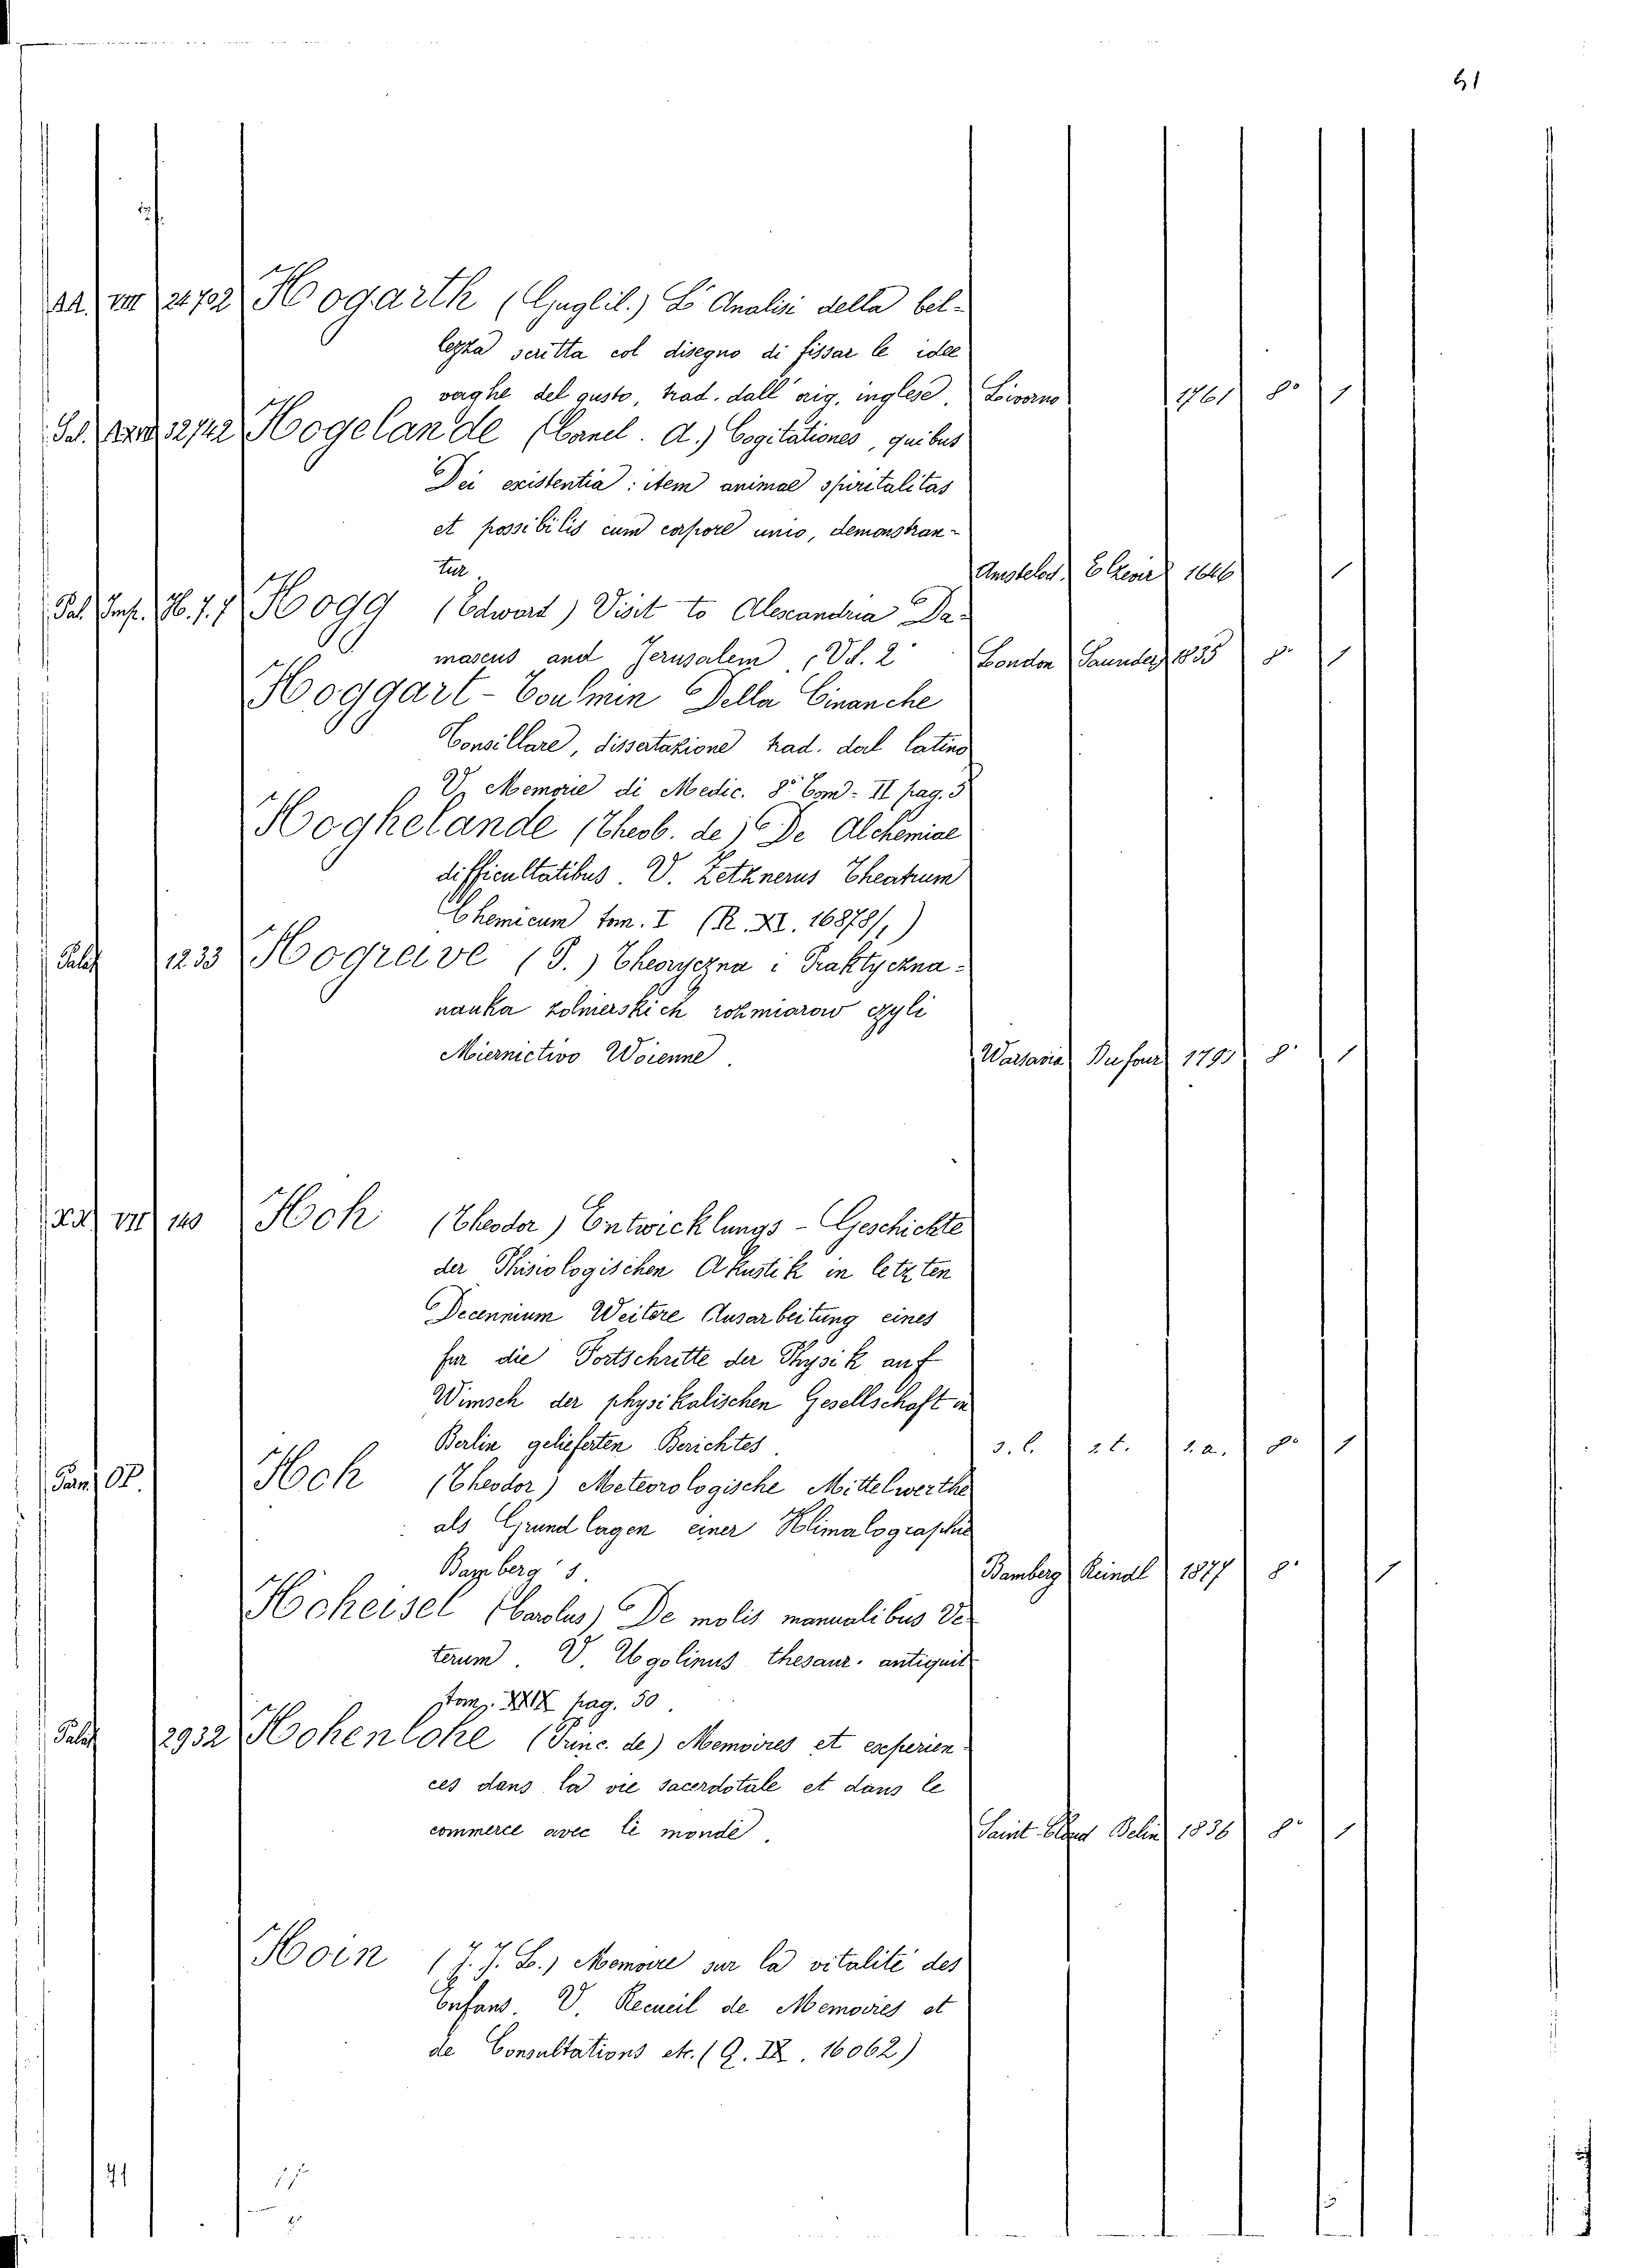 61
AA. VIII 24702 Hogarth (Guglil.) L'Analisi della bel-
lezza scritta col disegno di fissar le idee
vaghe del gusto, trad. dall'orig. inglese. Livorno 1761 8° 1
Sal. 32742 Hogelande (Cancl. A.) Cogitationes, quibus
Dei existentia: item animae spiritalitas
et possibilis cum corpore unio, demonstran-
tur. Amstelod. Elzevir 1646 1
Sal. Imp. H. 7. 7 Hogg (Edward) Visit to Alexandria Da-
mascus and Jerusalem, Vol. 2 London Saunders 1835 8° 1
Hoggart-Toulmin Della Cinanche
Consillare, dissertazione trad. dal latino
V. Memorie di Medic. 8° Tom. II pag. 3
Hoghelande (Theob. de) De Alchemiae
difficultatibus. V. Zetznerus Theatrum
Chemicum tom. I (R. XI. 16878/1)
Palat 1233 Hogreive (J.) Theoryczna i Praktyczna-
nauka zolnierskich rozmiarow czyli
Miernictwo Woienne. Warsavia Dufour 1790 8° 1
VII 140 Hoh (Theodor) Entwicklungs-Geschichte
der Phisiologischen Akustik in letzten
Decennium Weitere Ausarbeitung eines
fur die Fortschritte der Physik auf
Wunsch der physikalischen Gesellschaft in
Berlin gelieferten Berichtes. s. l. s. t. s. a. 8° 1
Hoh (Theodor) Meteorologische Mittelwerthe
als Grundlagen einer Klimalographie
Bamberg's. Bamberg Reindl 1877 8° 1
Hoheisel (Carolus) De molis manualibus Ve-
terum. V. Ugolinus thesaur. antiquit
tom. XXIX pag. 50.
Palat 2932 Hohenlohe (Princ. de) Memoires et experien-
ces dans la vie sacerdotale et dans le
commerce avec le monde. Saint-Cloud Belin 1836 8° 1
Hoin (J. J. L.) Memoire sur la vitalité des
Enfans. V. Recueil de Memoires et
de Consultations etc. (Q. IX. 16062)
71